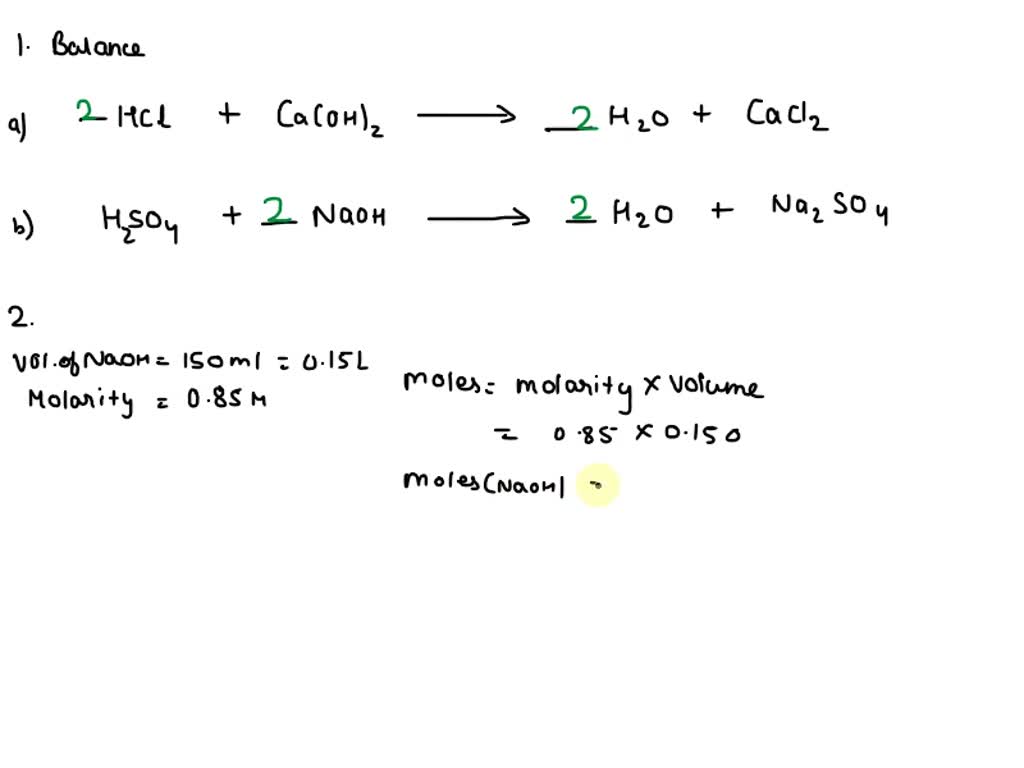 1. Balance
a) 2 HCl + Ca(OH)2 ⟶ 2 H2O + CaCl2
b) H2SO4 + 2 NaOH ⟶ 2 H2O + Na2SO4
2.
Vol. of NaOH = 150 ml = 0.15L
Molarity = 0.85 M
moles = molarity × volume
= 0.85 × 0.150
moles(NaOH) =